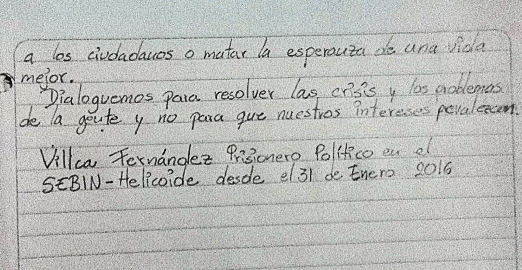 a los ciudadanos o matar la esperanza de una vida
mejor.
Dialoguemos para resolver las crisis y los problemas
de la gente y no para que nuestros intereses prevalezcan.
Villca Fernández Prisionero Político en el
SEBIN-Helicoide desde el 31 de Enero 2016